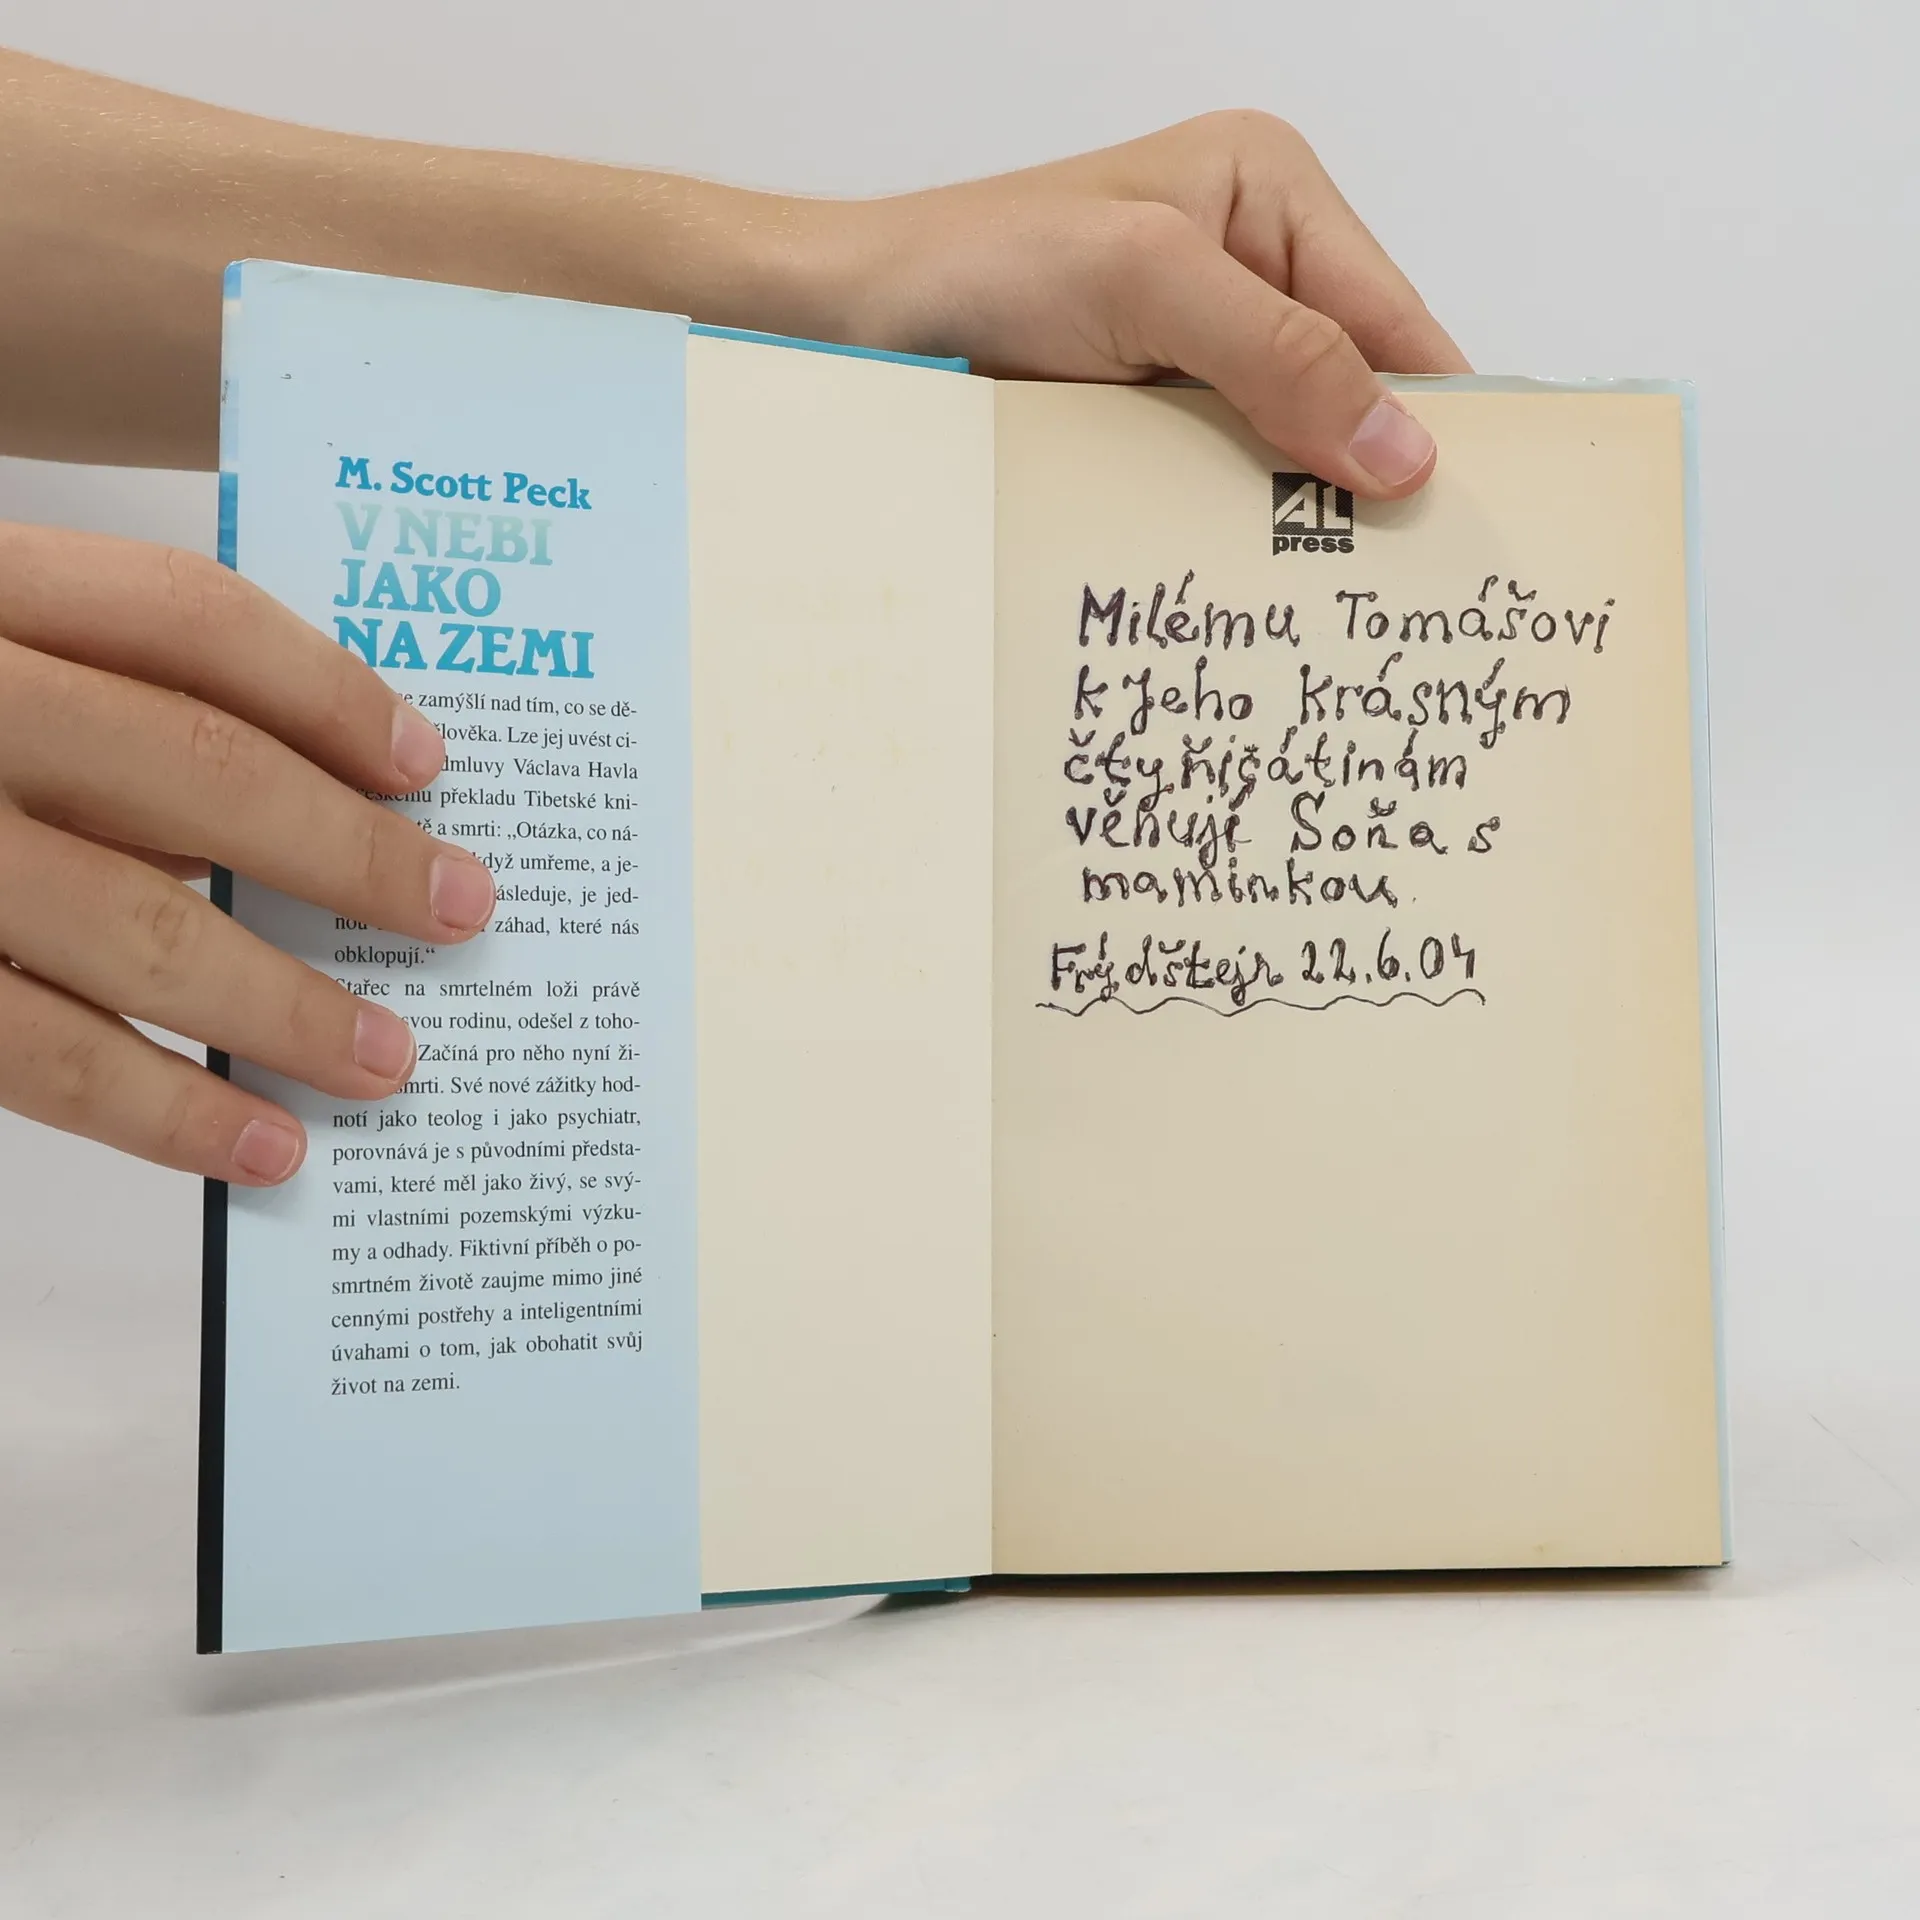 M. Scott Peck
V NEBI
JAKO
NA ZEMI
zamýšlí nad tím, co se dě-
člověka. Lze jej uvést ci-
Václava Havla
překladu Tibetské kni-
a smrti: „Otázka, co ná-
když umřeme, a je-
následuje, je jed-
nou záhad, které nás
obklopují.“
Stařec na smrtelném loži právě
svou rodinu, odešel z toho-
Začíná pro něho nyní ži-
smrti. Své nové zážitky hod-
notí jako teolog i jako psychiatr,
porovnává je s původními představa-
vami, které měl jako živý, se svý-
mi vlastními pozemskými výzku-
my a odhady. Fiktivní příběh o po-
smrtném životě zaujme mimo jiné
cennými postřehy a inteligentními
úvahami o tom, jak obohatit svůj
život na zemi.
AL
press
Milému Tomášovi
k Jeho krásným
čtyřicátinám
věnují Soňa s
maminkou.
Frýdštejn 22.6.04